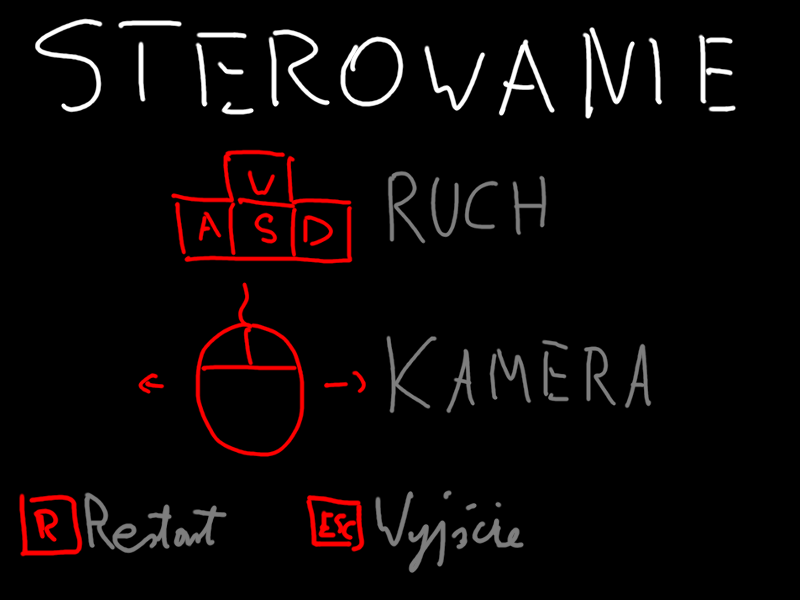 STEROWANIE
W
A S D RUCH
KAMERA
R Restart ESC Wyjście